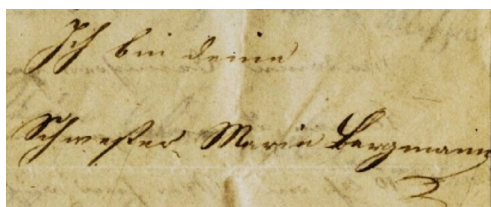 Ich bin deine
Schwester Marie Bergmann